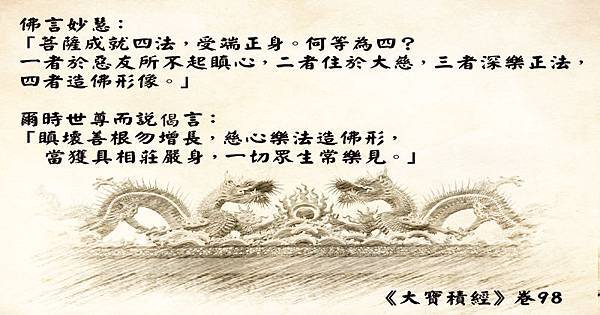 佛言妙慧：
「菩薩成就四法，受端正身。何等為四？
一者於惡友所不起瞋心，二者住於大慈，三者深樂正法，
四者造佛形像。」
爾時世尊而說偈言：
「瞋壞善根勿增長，慈心樂法造佛形，
當獲具相莊嚴身，一切眾生常樂見。」
《大寶積經》卷98